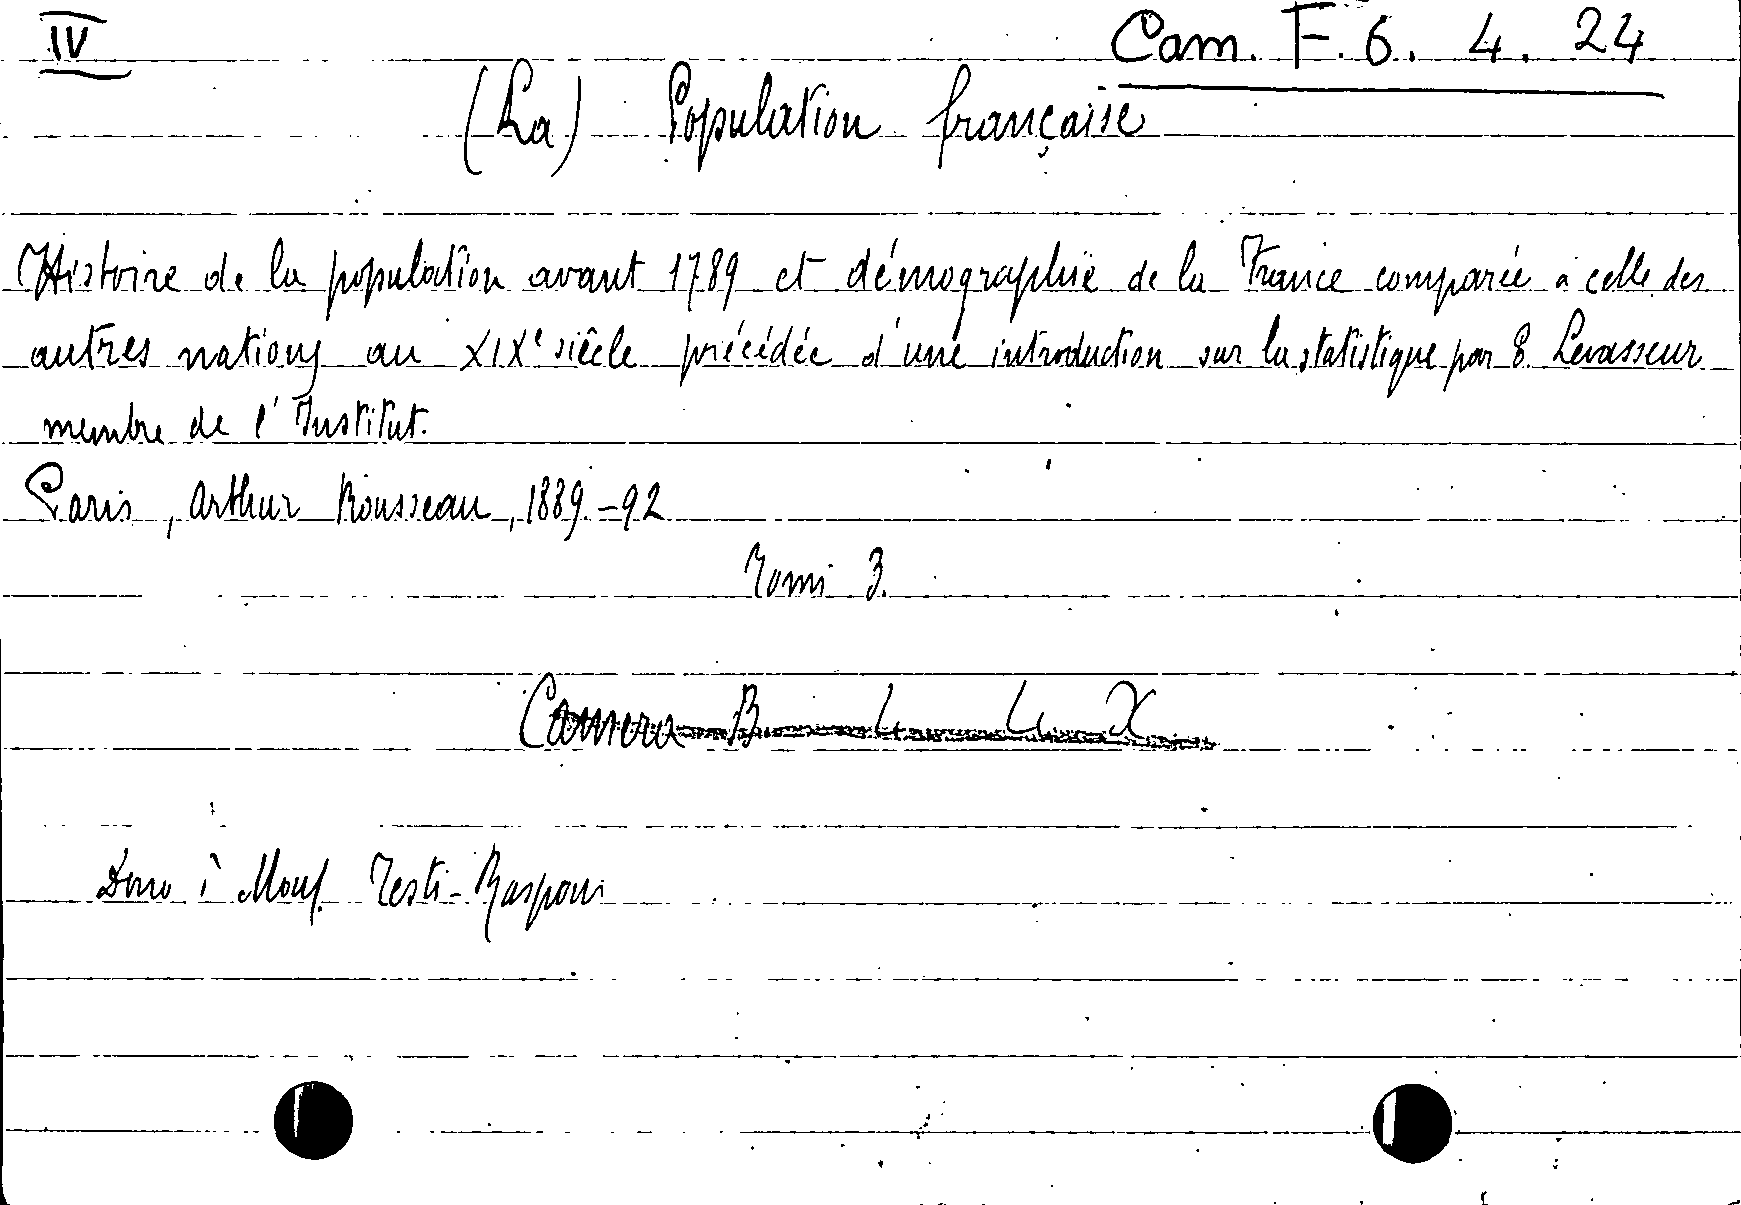 IV
Cam. F. 6. 4. 24
(La) Population française
Histoire de la population avant 1789 et démographie de la France comparée à celle des
autres nations au XIXe siècle précédée d'une introduction sur la statistique par E. Levasseur
membre de l'Institut.
Paris, Arthur Rousseau, 1889-92
Tomi 3.
Camera B
Dono
Testi-Rasponi